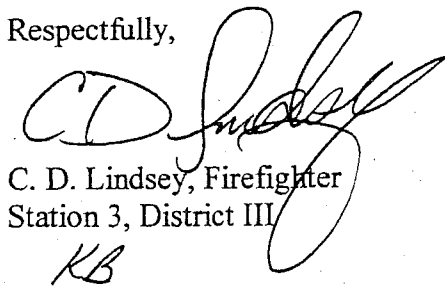 Respectfully,
CD Lindsey
C. D. Lindsey, Firefighter
Station 3, District III
KB